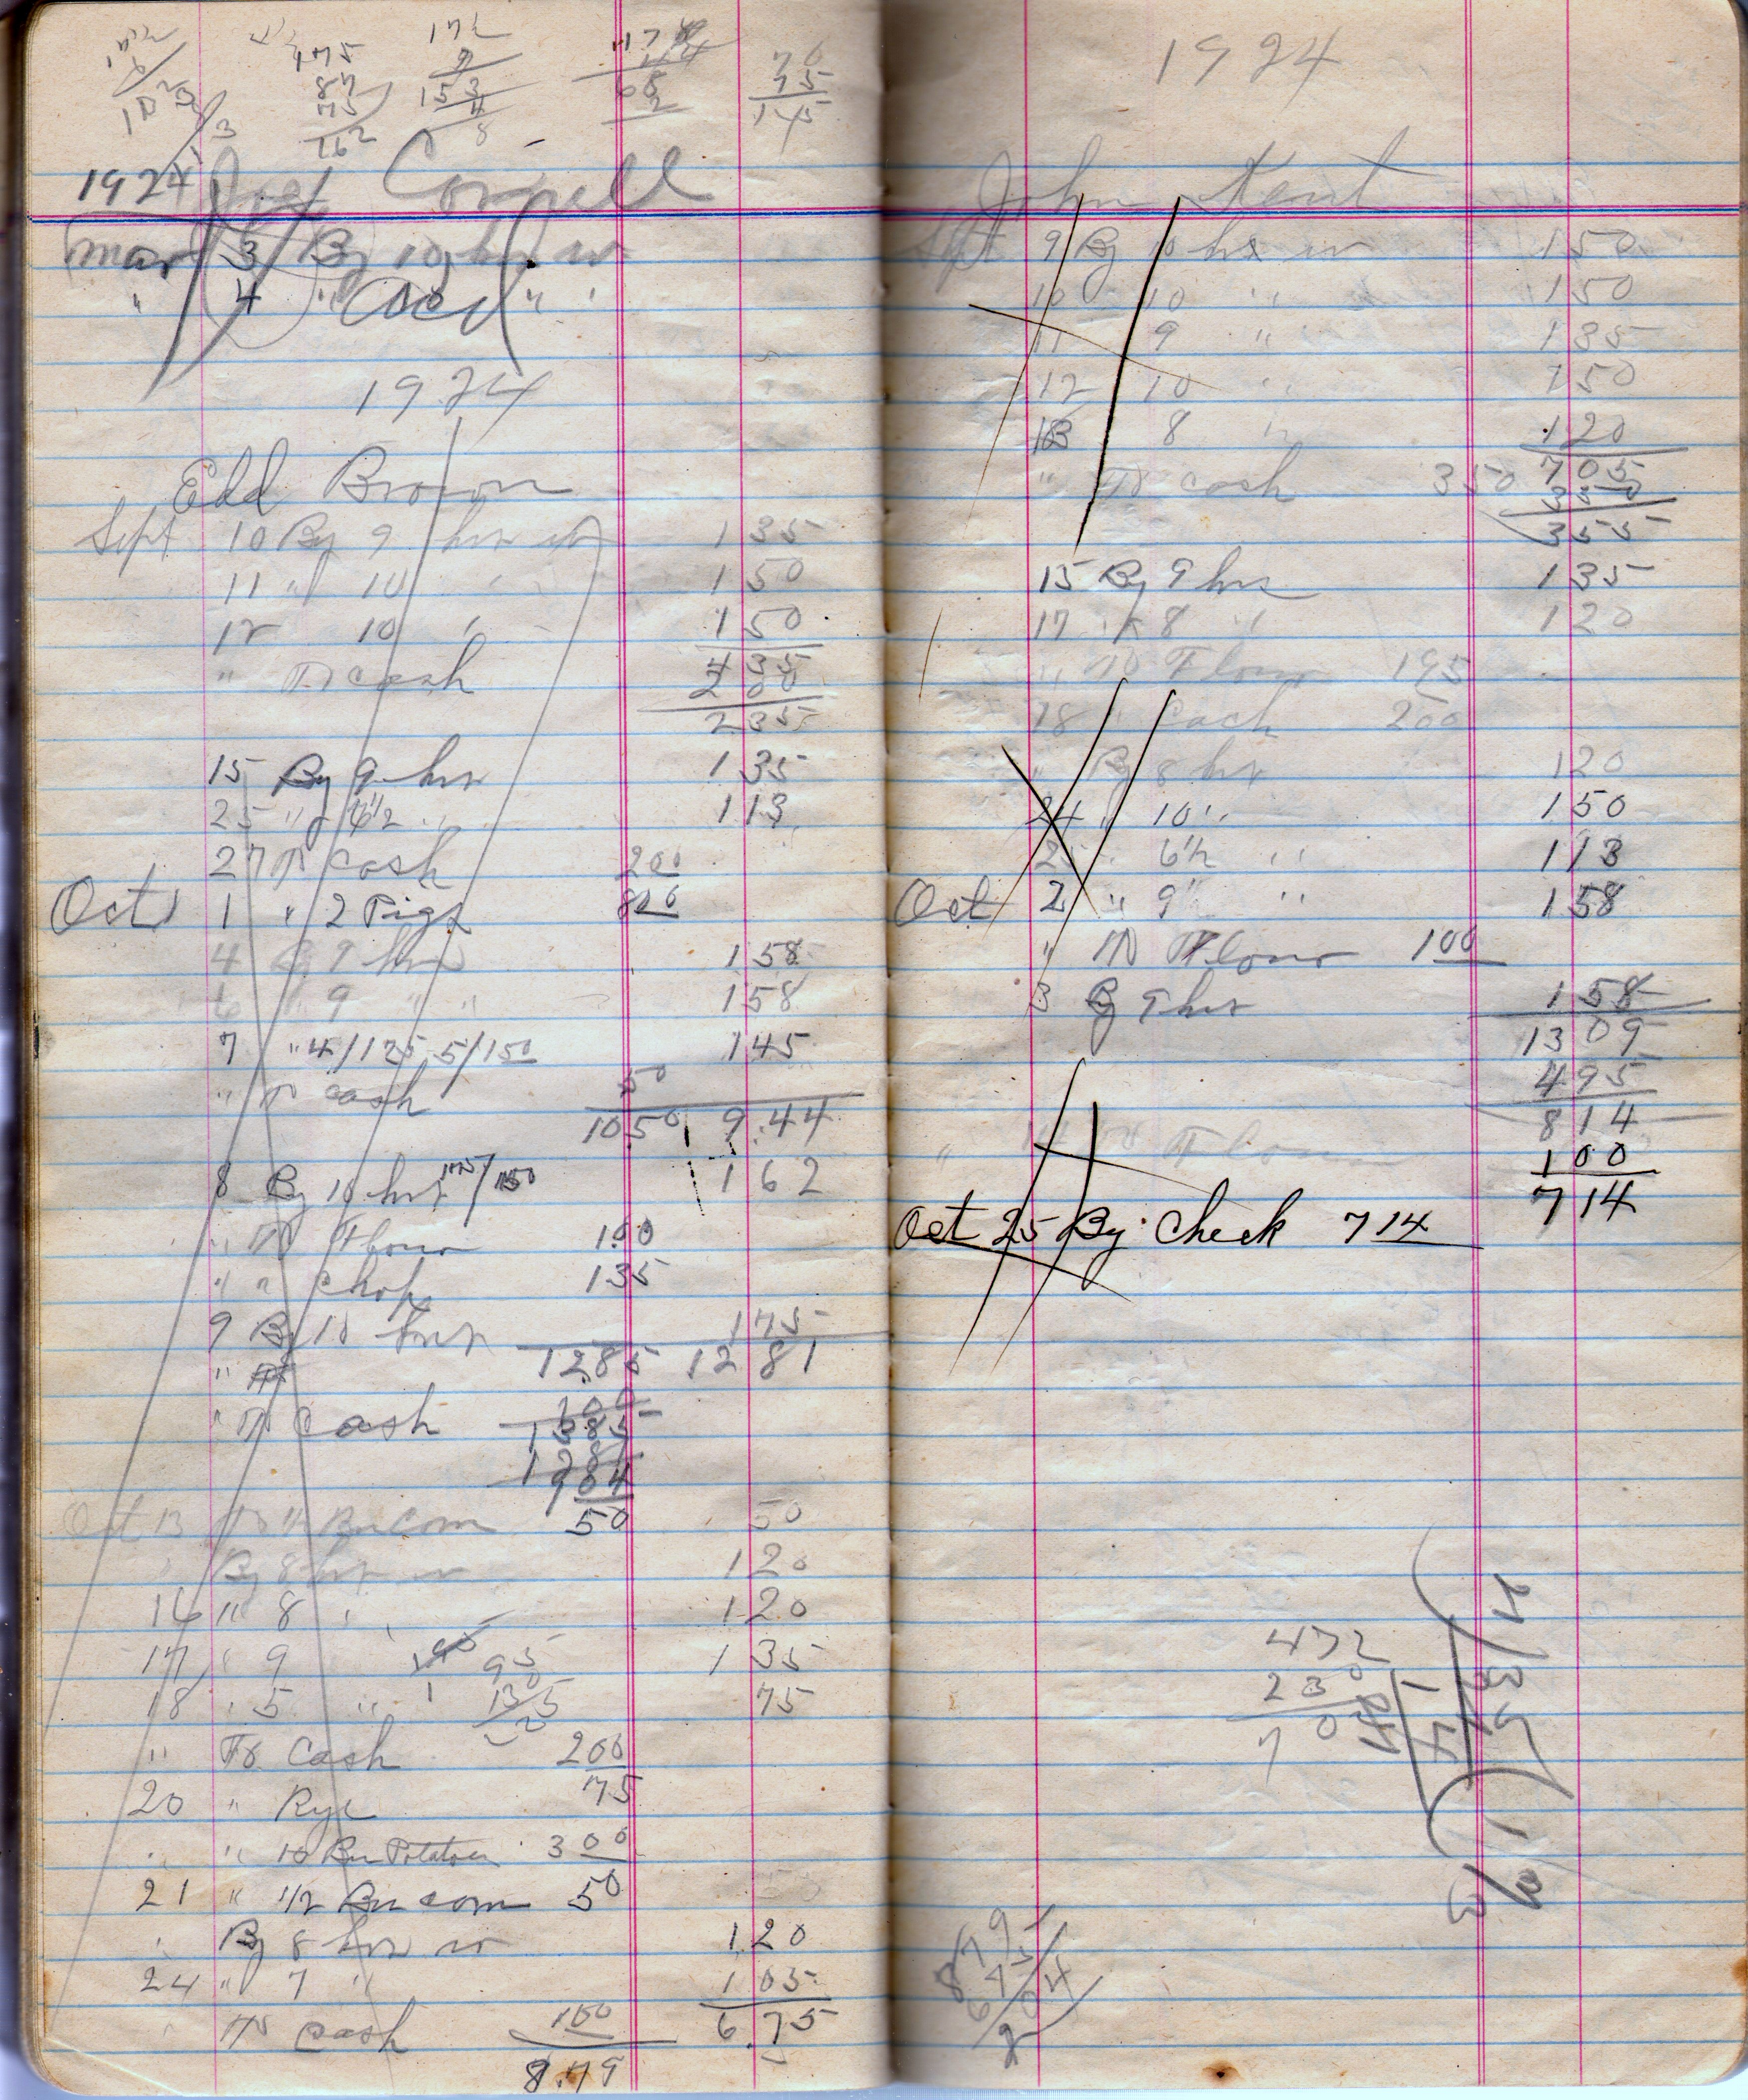 175
87
172
70
75
145
1924 Cornell
Mar 3 By 10 hrs w
" 4 " 10 " "
1924
Edd Brown
Sept 10 By 9 hrs w 135
11 " 10 " 150
12 10 " 150
435
" To cash 200
235
15 By 9 hrs 135
25 " 113
27 To cash 200
Oct 1 " 2 Pigs 800
4 By 9 hrs 158
6 " 9 " " 158
7 " 4/125 5/150 145
" To cash 50
1050 9.44
8 By 10 hrs 162
" To Flour 100
" " Chop 135
9 By 10 hrs 175
1285 1281
" To
" To Cash 100
1385
1281
904
Oct 13 To Bu Corn 50 50
" By 8 hrs w 120
16 " 8 " 120
17 " 9 135
95
18 " 5 " 75
" To Cash 200
20 " Rye 75
" " 10 Bu Potatoes 300
21 " 1/2 Bu corn 50
" By 8 hrs w 120
24 " 7 " 105
6.75
" To Cash 100
8.79
1924
John Kent
Sept 9 By 10 hrs w 150
10 10 " 150
11 9 " 135
12 10 " 150
13 8 " 120
705
" To cash 350 350
355
15 By 9 hrs 135
17 " 8 " 120
" To Flour 195
18 " Cash 200
" By 8 hrs 120
24 " 10 " 150
25 " 6 1/2 " 113
Oct 2 " 9 " 158
" To Flour 100
3 By 9 hrs 158
1309
495
814
" To Flour 100
714
Oct 25 By Check 714
472
230
70
879
675
204